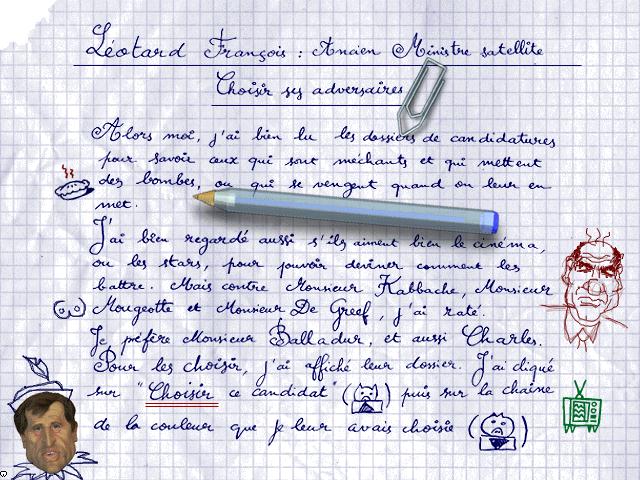 Léotard François : Ancien Ministre satellite
Choisir ses adversaires
Alors moi, j'ai bien lu les dossiers de candidatures
pour savoir ceux qui sont méchants et qui mettent
des bombes, ou qui se vengent quand on leur en
met.
J'ai bien regardé aussi s'ils aiment bien le cinéma,
ou les stars, pour pouvoir deviner comment les
battre. Mais contre Monsieur Kabbache, Monsieur
Mougeotte et Monsieur De Greef, j'ai raté.
Je préfère Monsieur Balladur, et aussi Charles.
Pour les choisir, j'ai affiché leur dossier. J'ai cliqué
sur "Choisir ce candidat" ( ) puis sur la chaîne
de la couleur que je leur avais choisie ( )